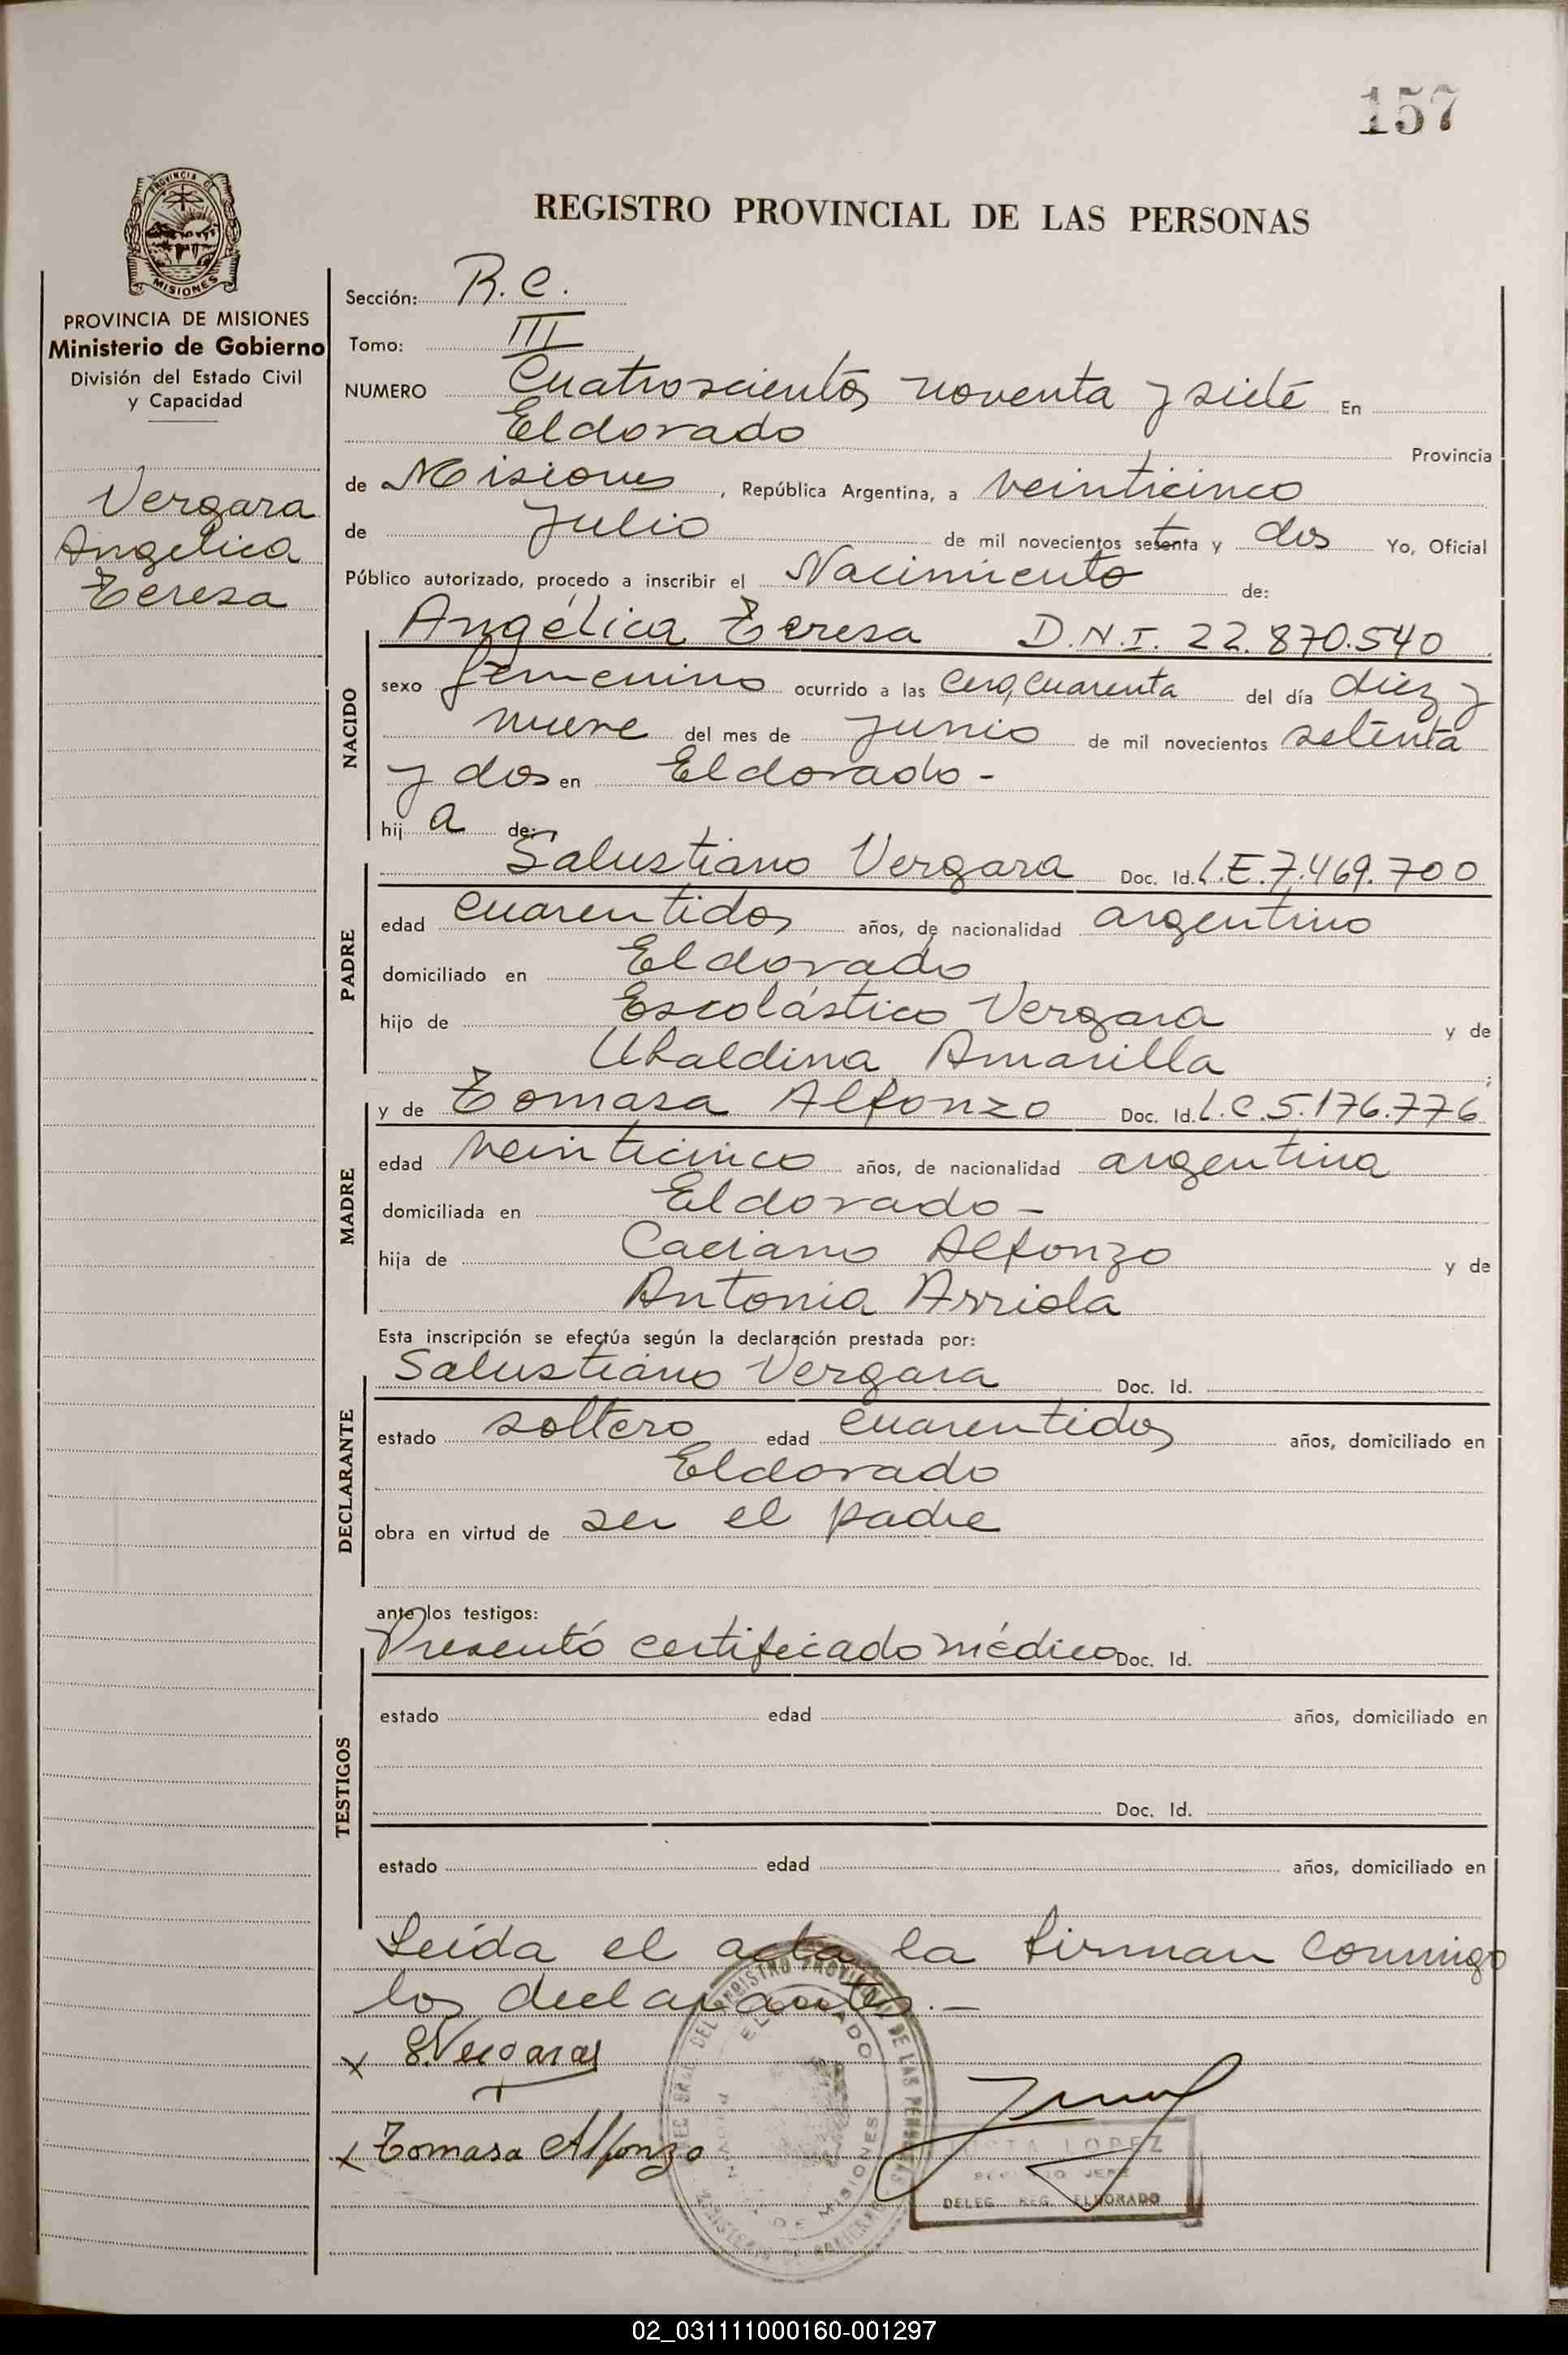 157
PROVINCIA DE
MISIONES
REGISTRO PROVINCIAL DE LAS PERSONAS
PROVINCIA DE MISIONES
Ministerio de Gobierno
División del Estado Civil
y Capacidad
Vergara
Angelica
Teresa
Sección: R. C.
Tomo: III
NUMERO Cuatroscientos noventa y siete En
Eldorado Provincia
de Misiones, República Argentina, a veinticinco
de julio de mil novecientos setenta y dos Yo, Oficial
Público autorizado, procedo a inscribir el Nacimiento de:
NACIDO
Angélica Teresa D.N.I. 22.870.540
sexo femenino ocurrido a las cerocuarenta del día diez y
nueve del mes de junio de mil novecientos setenta
y dos en Eldorado -
hij a de:
PADRE
Salustiano Vergara Doc. Id. L.E.7.469.700
edad cuarentidos años, de nacionalidad argentino
domiciliado en Eldorado
hijo de Escolástico Vergara y de
Ubaldina Amarilla ;
MADRE
y de Tomasa Alfonzo Doc. Id. L.C.5.176.776
edad veinticinco años, de nacionalidad argentina
domiciliada en Eldorado -
hija de Caciano Alfonzo y de
Antonia Arriola
Esta inscripción se efectúa según la declaración prestada por:
DECLARANTE
Salustiano Vergara Doc. Id.
estado soltero edad cuarentidos años, domiciliado en
Eldorado
obra en virtud de ser el padre
ante los testigos:
TESTIGOS
Presentó certificado médico Doc. Id.
estado edad años, domiciliado en
Doc. Id.
estado edad años, domiciliado en
Leída el acta la firman conmigo
los declarantes.-
x S. Vergara
x Tomasa Alfonzo
DEL REGISTRO PROVINCIAL DE LAS PERSONAS
ELDORADO
DE MISIONES
LOPEZ
JEFE
DELEG. REG. ELDORADO
02_031111000160-001297